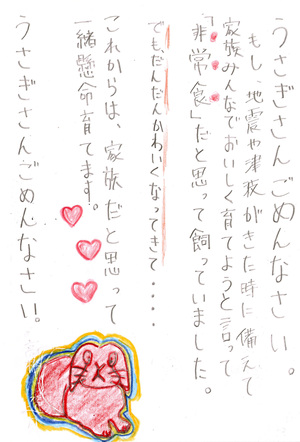 うさぎさんごめんなさい。
もし、地震や津波がきた時に備えて
家族みんなでおいしく育てようと言って
「非常食」だと思って飼っていました。
でも、だんだんかわいくなってきて・・・・
これからは、家族だと思って
一緒懸命育てます。
うさぎさんごめんなさい。